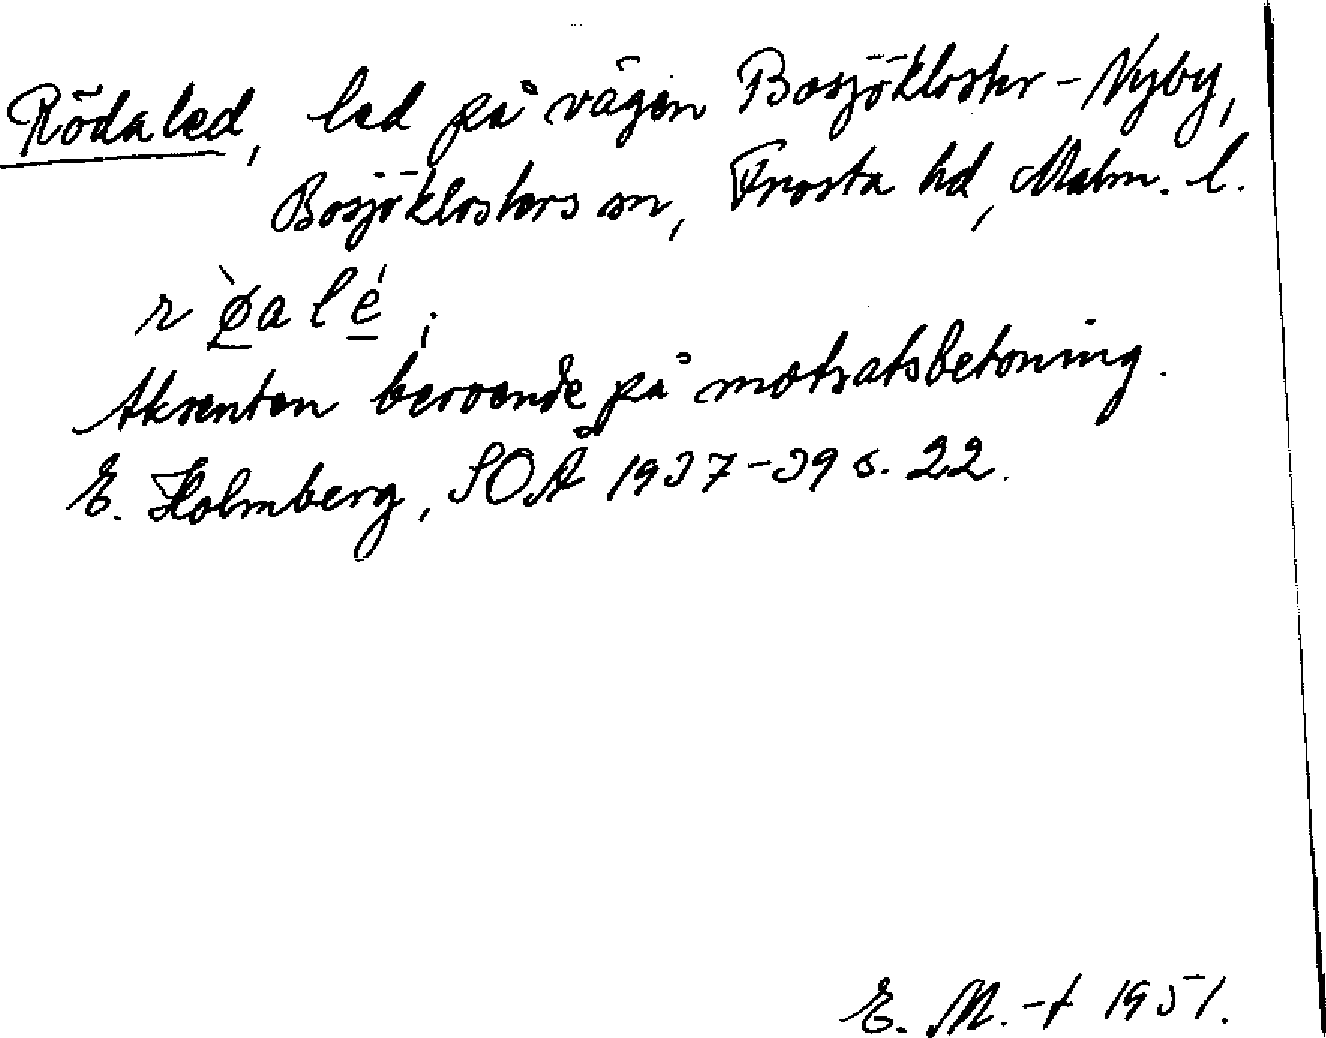 Rödaled, led på vägen Bosjökloster - Nyby,
Bosjöklosters sn, Frosta hd, Malm. l.
r ø̀a l é ;
Akcenten beroende på motsatsbetoning.
E. Holmberg, SOÅ 1937-39 s. 22.
E. M.-t 1951.